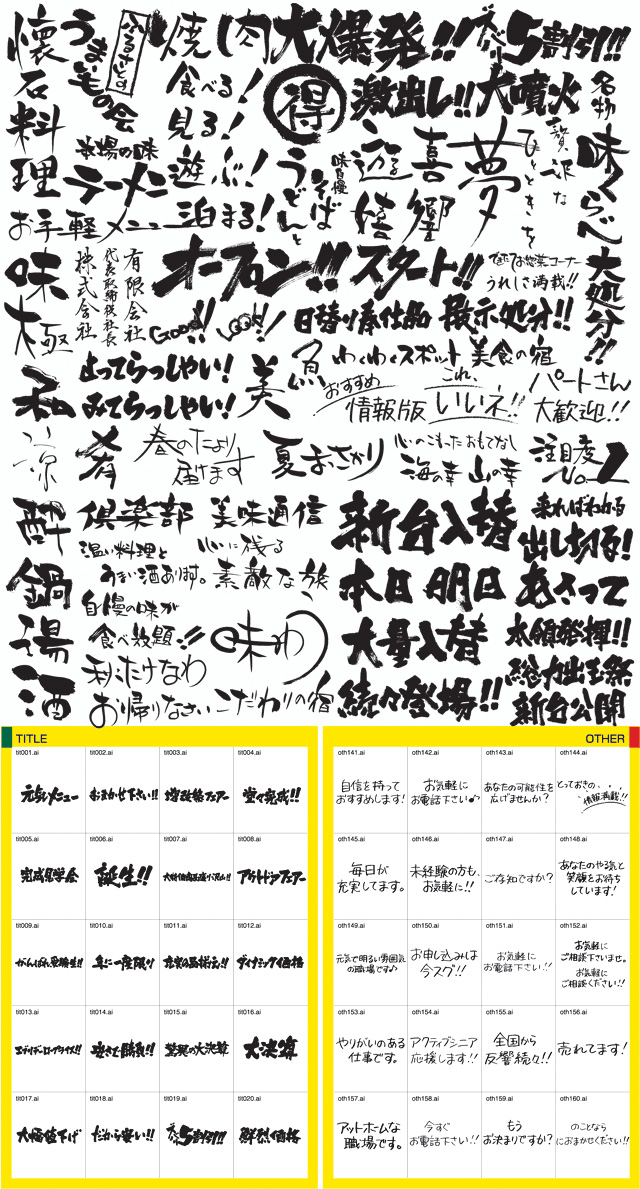 懐石料理
うまいもの会
ふるさとの
焼肉
大爆発!!
ズバリ5割引!!
食べる!
見る!
遊ぶ!
泊まる!
得
激出し!!
大噴火
名物
味くらべ
本場の味
ラーメン
お手軽メニュー
うどんと
そば
味自慢
遊
喜
夢
響
贅沢な
ひとときを
大処分!!
味
極
株式会社
代表取締役社長
有限会社
オープン!!
スタート!!
できたてお惣菜コーナー
うれしさ満載!!
Good!!
日替り奉仕品
展示処分!!
和
よってらっしゃい!
みてらっしゃい!
美
魚
わくわくスポット
美食の宿
おすすめ
情報版
これ、
いいネ!!
パートさん
大歓迎!!
涼
肴
春のたより
届けます
夏まっさかり
心のこもったおもてなし
海の幸 山の幸
注目度
No.1
酔
倶楽部
美味通信
新台入替
来ればわかる
出し切る!
温い料理と
うまい酒あります。
心に残る
素敵な旅
本日
明日
あさって
鍋
自慢の味が
食べ放題!!
味わう
大量入替
本領発揮!!
湯
秋たけなわ
総力出玉祭
酒
お帰りなさい
こだわりの宿
続々登場!!
新台公開
TITLE
tit001.ai
tit002.ai
tit003.ai
tit004.ai
元気メニュー
おまかせ下さい!!
増改築フェアー
堂々完成!!
tit005.ai
tit006.ai
tit007.ai
tit008.ai
完成見学会
誕生!!
アウトドアフェアー
tit009.ai
tit010.ai
tit011.ai
tit012.ai
がんばれ受験生!!
年に一度限り
充実の品揃え!!
ダイナミック価格
tit013.ai
tit014.ai
tit015.ai
tit016.ai
エブリデーロープライス!!
安さで勝負!!
驚異の大決算
大決算
tit017.ai
tit018.ai
tit019.ai
tit020.ai
大幅値下げ
だから安い!!
ズバリ5割引!!
鮮烈価格
OTHER
oth141.ai
oth142.ai
oth143.ai
oth144.ai
自信を持って
おすすめします!
お気軽に
お電話下さい♪
あなたの可能性を
広げませんか?
とっておきの、
情報満載!!
oth145.ai
oth146.ai
oth147.ai
oth148.ai
毎日が
充実してます。
未経験の方も、
お気軽に!!
ご存知ですか?
あなたのやる気と
笑顔をお待ち
しています!
oth149.ai
oth150.ai
oth151.ai
oth152.ai
元気で明るい雰囲気
の職場です♪
お申し込みは
今スグ!!
お気軽に
お電話下さい!!
お気軽に
ご相談下さいませ。
お気軽に
ご相談ください!!
oth153.ai
oth154.ai
oth155.ai
oth156.ai
やりがいのある
仕事です。
アクティブシニア
応援します!!
全国から
反響続々!!
売れてます!
oth157.ai
oth158.ai
oth159.ai
oth160.ai
アットホームな
職場です。
今すぐ
お電話下さい!!
もう
お決まりですか?
のことなら
におまかせください!!